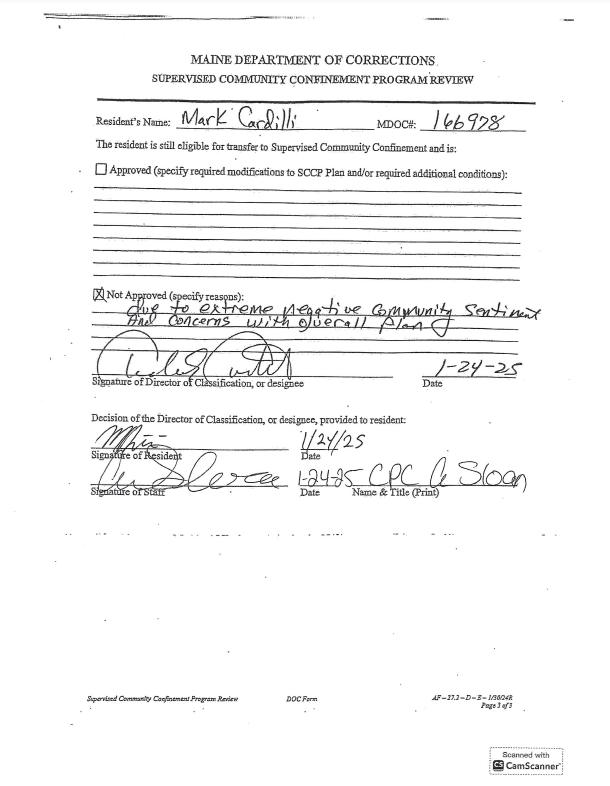 MAINE DEPARTMENT OF CORRECTIONS
SUPERVISED COMMUNITY CONFINEMENT PROGRAM REVIEW
Resident's Name: Mark Cardilli MDOC#: 166978
The resident is still eligible for transfer to Supervised Community Confinement and is:
Approved (specify required modifications to SCCP Plan and/or required additional conditions):
X Not Approved (specify reasons):
due to extreme negative Community Sentiment
And Concerns with overall plan
1-24-25
Signature of Director of Classification, or designee Date
Decision of the Director of Classification, or designee, provided to resident:
1/24/25
Signature of Resident Date
1-24-25 CPC A Sloan
Signature of Staff Date Name & Title (Print)
Supervised Community Confinement Program Review DOC Form AF-27.2-D-E-1/30/24R
Page 3 of 3
Scanned with
CS CamScanner